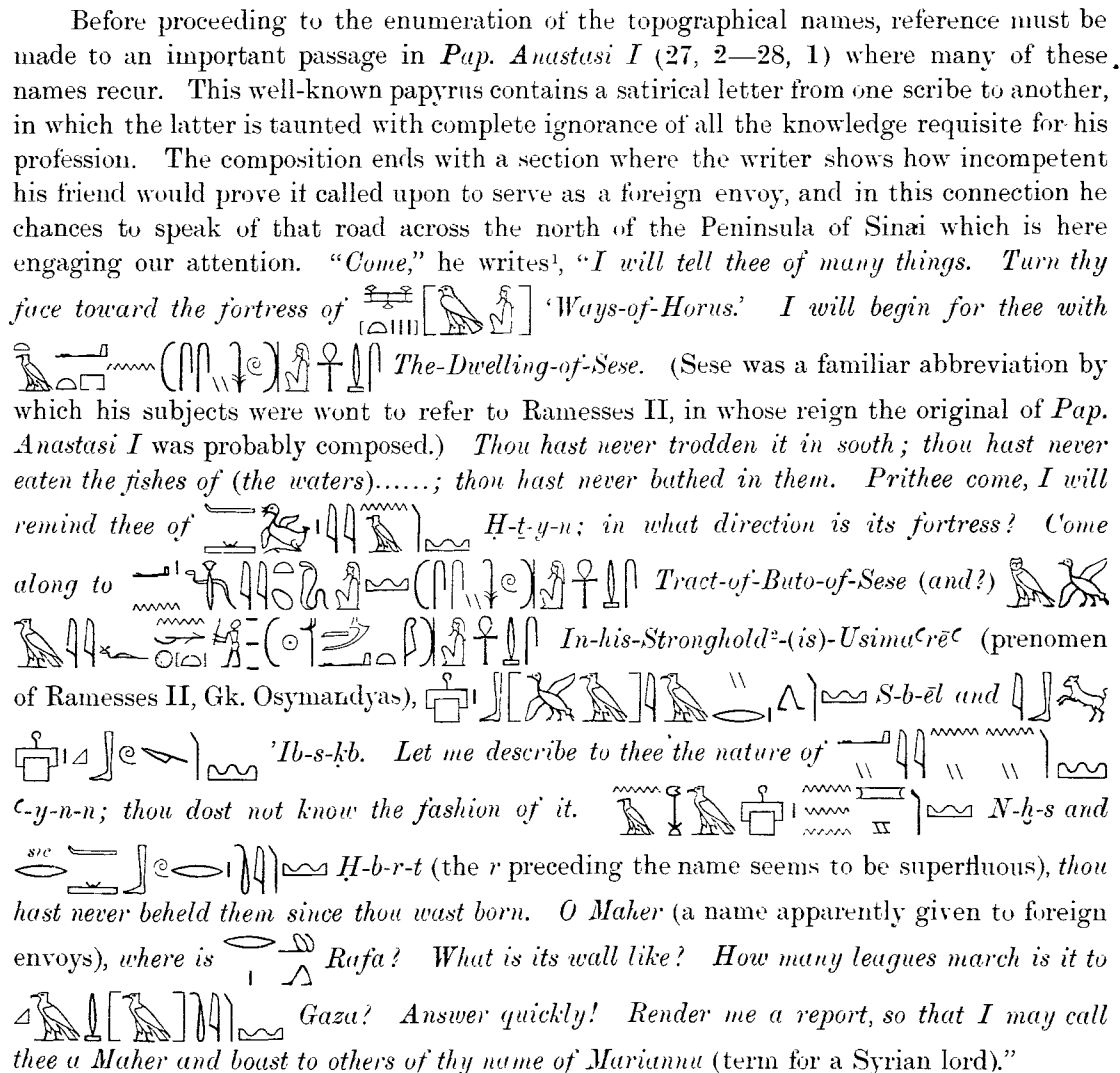 Before proceeding to the enumeration of the topographical names, reference must be
made to an important passage in Pap. Anastasi I (27, 2—28, 1) where many of these
names recur. This well-known papyrus contains a satirical letter from one scribe to another,
in which the latter is taunted with complete ignorance of all the knowledge requisite for his
profession. The composition ends with a section where the writer shows how incompetent
his friend would prove if called upon to serve as a foreign envoy, and in this connection he
chances to speak of that road across the north of the Peninsula of Sinai which is here
engaging our attention. "Come," he writes¹, "I will tell thee of many things. Turn thy
face toward the fortress of 'Ways-of-Horus.' I will begin for thee with
The-Dwelling-of-Sese. (Sese was a familiar abbreviation by
which his subjects were wont to refer to Ramesses II, in whose reign the original of Pap.
Anastasi I was probably composed.) Thou hast never trodden it in sooth; thou hast never
eaten the fishes of (the waters)......; thou hast never bathed in them. Prithee come, I will
remind thee of Ḥ-ṯ-y-n; in what direction is its fortress? Come
along to Tract-of-Buto-of-Sese (and?)
In-his-Stronghold²-(is)-Usimaꜥrēꜥ (prenomen
of Ramesses II, Gk. Osymandyas), S-b-ēl and
'Ib-s-ḳb. Let me describe to thee the nature of
ꜥ-y-n-n; thou dost not know the fashion of it. N-ḫ-s and
sic Ḥ-b-r-t (the r preceding the name seems to be superfluous), thou
hast never beheld them since thou wast born. O Maher (a name apparently given to foreign
envoys), where is Rafa? What is its wall like? How many leagues march is it to
Gaza? Answer quickly! Render me a report, so that I may call
thee a Maher and boast to others of thy name of Marianna (term for a Syrian lord)."